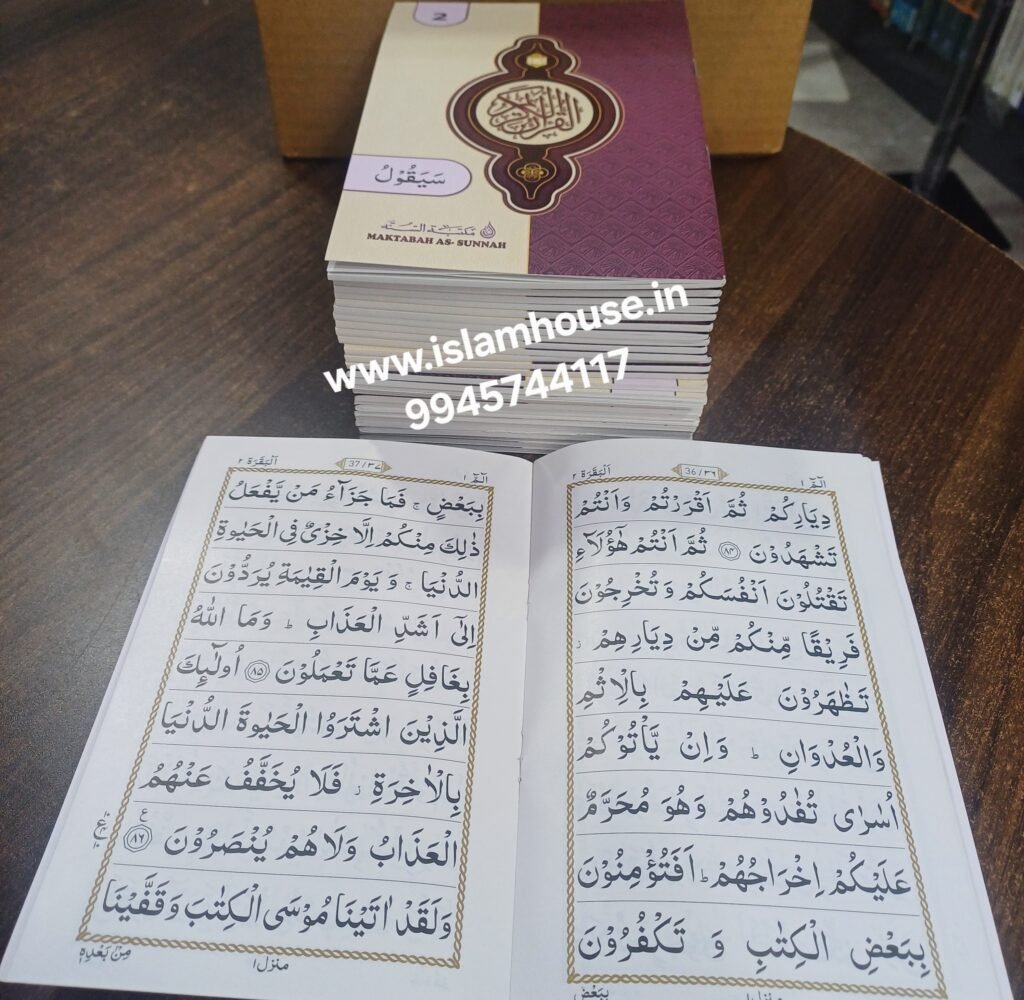 2
القرآن الكريم
سَيَقُوْلُ
مكتبة السنة
MAKTABAH AS- SUNNAH
www.islamhouse.in
9945744117
الٓمّٓ ١
36/٣٦
اَلْبَقَرَة ٢
دِيَارِكُمْ ثُمَّ اَقْرَرْتُمْ وَاَنْتُمْ
تَشْهَدُوْنَ ﴿٨٤﴾ ثُمَّ اَنْتُمْ هٰٓؤُلَآءِ
تَقْتُلُوْنَ اَنْفُسَكُمْ وَتُخْرِجُوْنَ
فَرِيْقًا مِّنْكُمْ مِّنْ دِيَارِهِمْ ز
تَظٰهَرُوْنَ عَلَيْهِمْ بِالْاِثْمِ
وَالْعُدْوَانِ ط وَاِنْ يَّاْتُوْكُمْ
اُسٰرٰى تُفٰدُوْهُمْ وَهُوَ مُحَرَّمٌ
عَلَيْكُمْ اِخْرَاجُهُمْ ط اَفَتُؤْمِنُوْنَ
بِبَعْضِ الْكِتٰبِ وَ تَكْفُرُوْنَ
منزل١
بِبَعْضٍ
الٓمّٓ ١
37/٣٧
اَلْبَقَرَة ٢
بِبَعْضٍ ج فَمَا جَزَآءُ مَنْ يَّفْعَلُ
ذٰلِكَ مِنْكُمْ اِلَّا خِزْىٌ فِى الْحَيٰوةِ
الدُّنْيَا ج وَ يَوْمَ الْقِيٰمَةِ يُرَدُّوْنَ
اِلٰٓى اَشَدِّ الْعَذَابِ ط وَمَا اللّٰهُ
بِغَافِلٍ عَمَّا تَعْمَلُوْنَ ﴿٨٥﴾ اُولٰٓئِكَ
الَّذِيْنَ اشْتَرَوُا الْحَيٰوةَ الدُّنْيَا
بِالْاٰخِرَةِ ز فَلَا يُخَفَّفُ عَنْهُمُ
الْعَذَابُ وَلَا هُمْ يُنْصَرُوْنَ ﴿٨٦﴾ ع
وَلَقَدْ اٰتَيْنَا مُوْسَى الْكِتٰبَ وَقَفَّيْنَا
منزل١
مِنْۢ بَعْدِهٖ